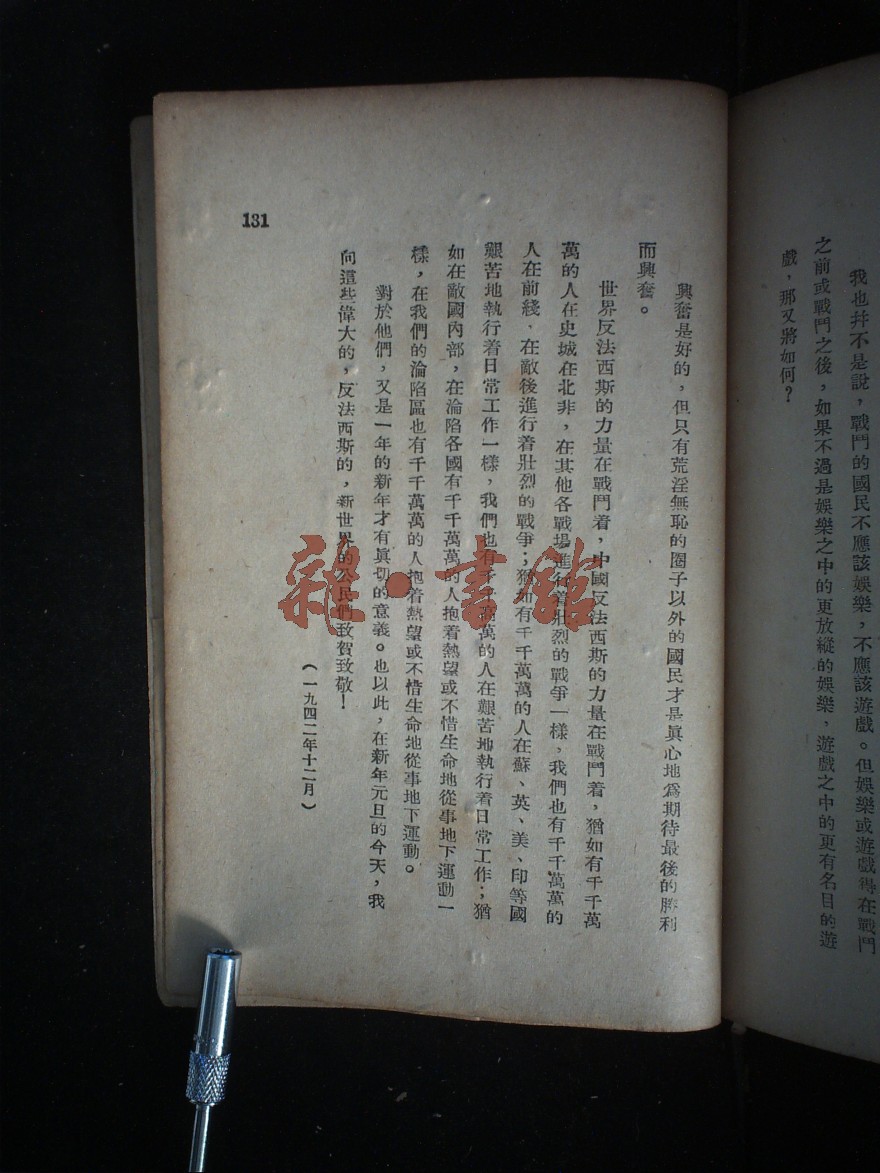 我也幷不是說，戰鬥的國民不應該娛樂，不應該遊戲。但娛樂或遊戲得在戰鬥
之前或戰鬥之後，如果不過是娛樂之中的更放縱的娛樂，遊戲之中的更有名目的遊
戲，那又將如何？
興奮是好的，但只有荒淫無恥的圈子以外的國民才是眞心地爲期待最後的勝利
而興奮。
世界反法西斯的力量在戰鬥着，中國反法西斯的力量在戰鬥着，猶如有千千萬
萬的人在史城在北非，在其他各戰場進行着壯烈的戰爭一樣，我們也有千千萬萬的
人在前綫，在敵後進行着壯烈的戰爭；猶如有千千萬萬的人在蘇、英、美、印等國
艱苦地執行着日常工作一樣，我們也有千千萬萬的人在艱苦地執行着日常工作；猶
如在敵國內部，在淪陷各國有千千萬萬的人抱着熱望或不惜生命地從事地下運動一
樣，在我們的淪陷區也有千千萬萬的人抱着熱望或不惜生命地從事地下運動。
對於他們，又是一年的新年才有眞切的意義。也以此，在新年元旦的今天，我
向這些偉大的，反法西斯的，新世界的公民們致賀致敬！
（一九四二年十二月）
131
雜·書館